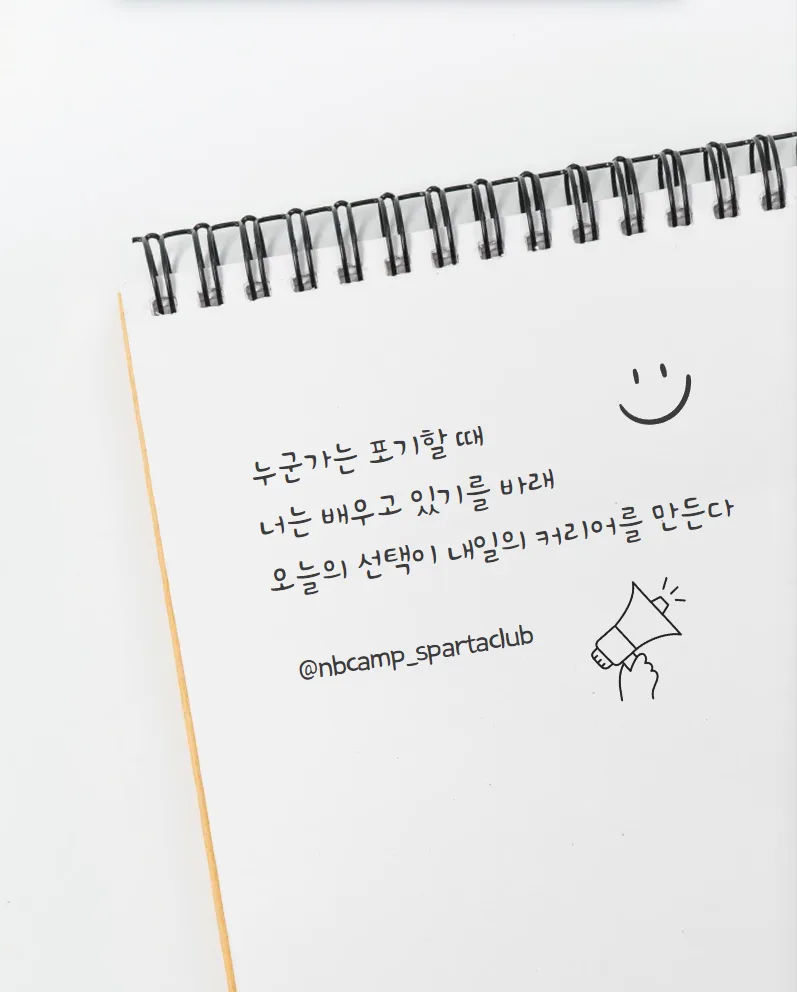 누군가는 포기할 때
너는 배우고 있기를 바래
오늘의 선택이 내일의 커리어를 만든다
@nbcamp_spartaclub